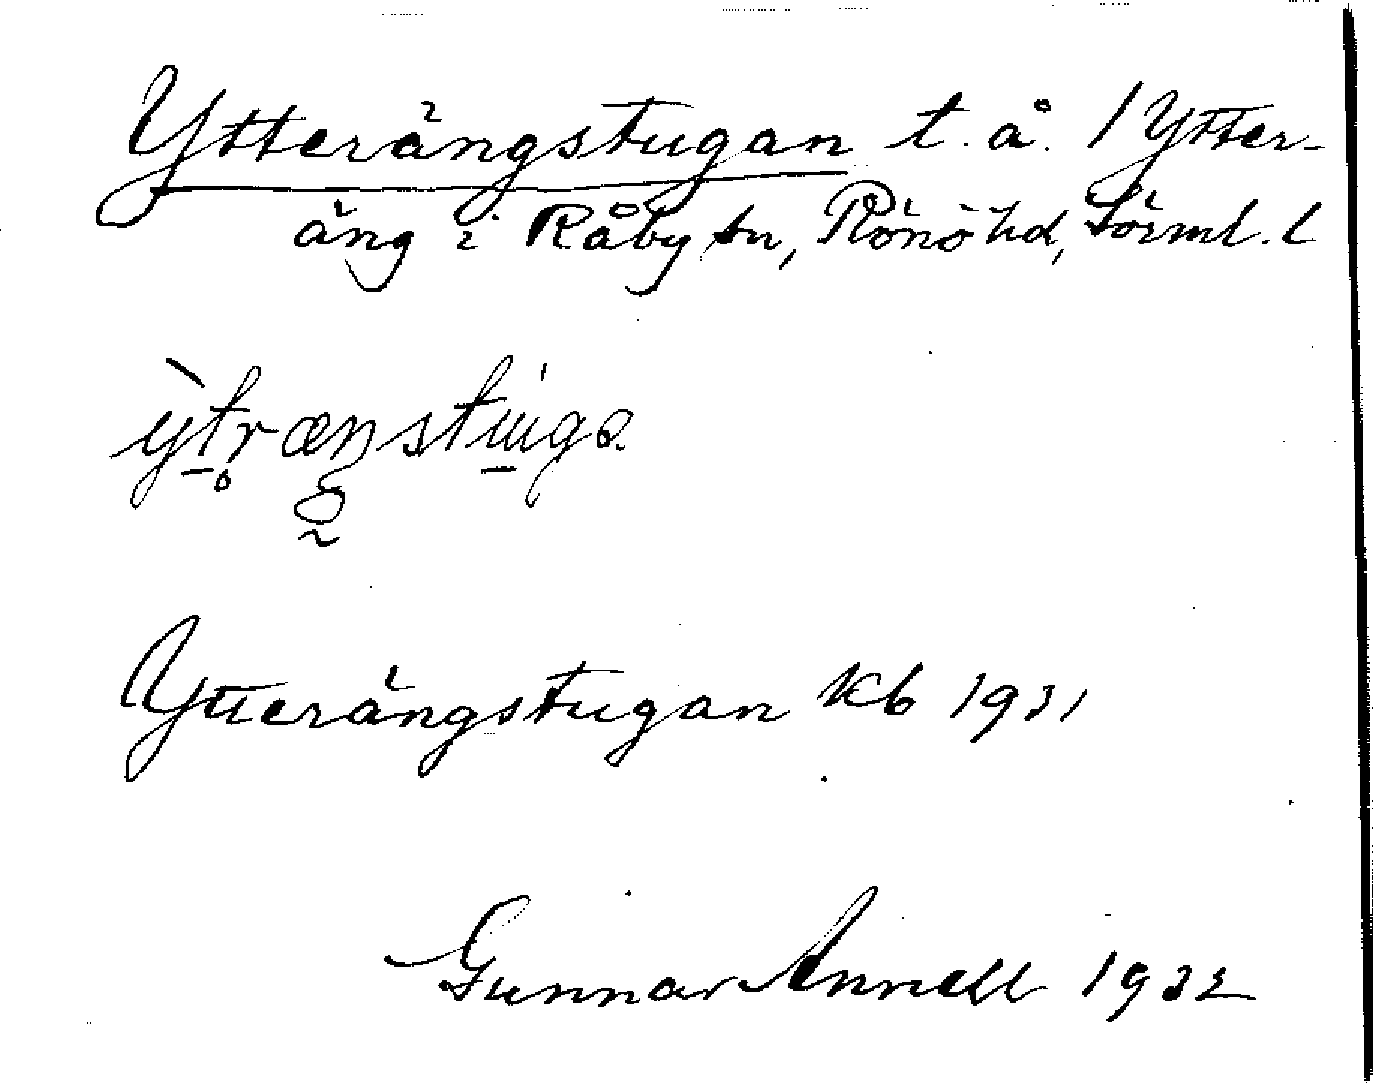 Ytterängstugan t. å. / Ytter-
äng i Råby sn, Rönö hd, Sörml. l
Ytterängstugan Kb 1931
Gunnar Annell 1932